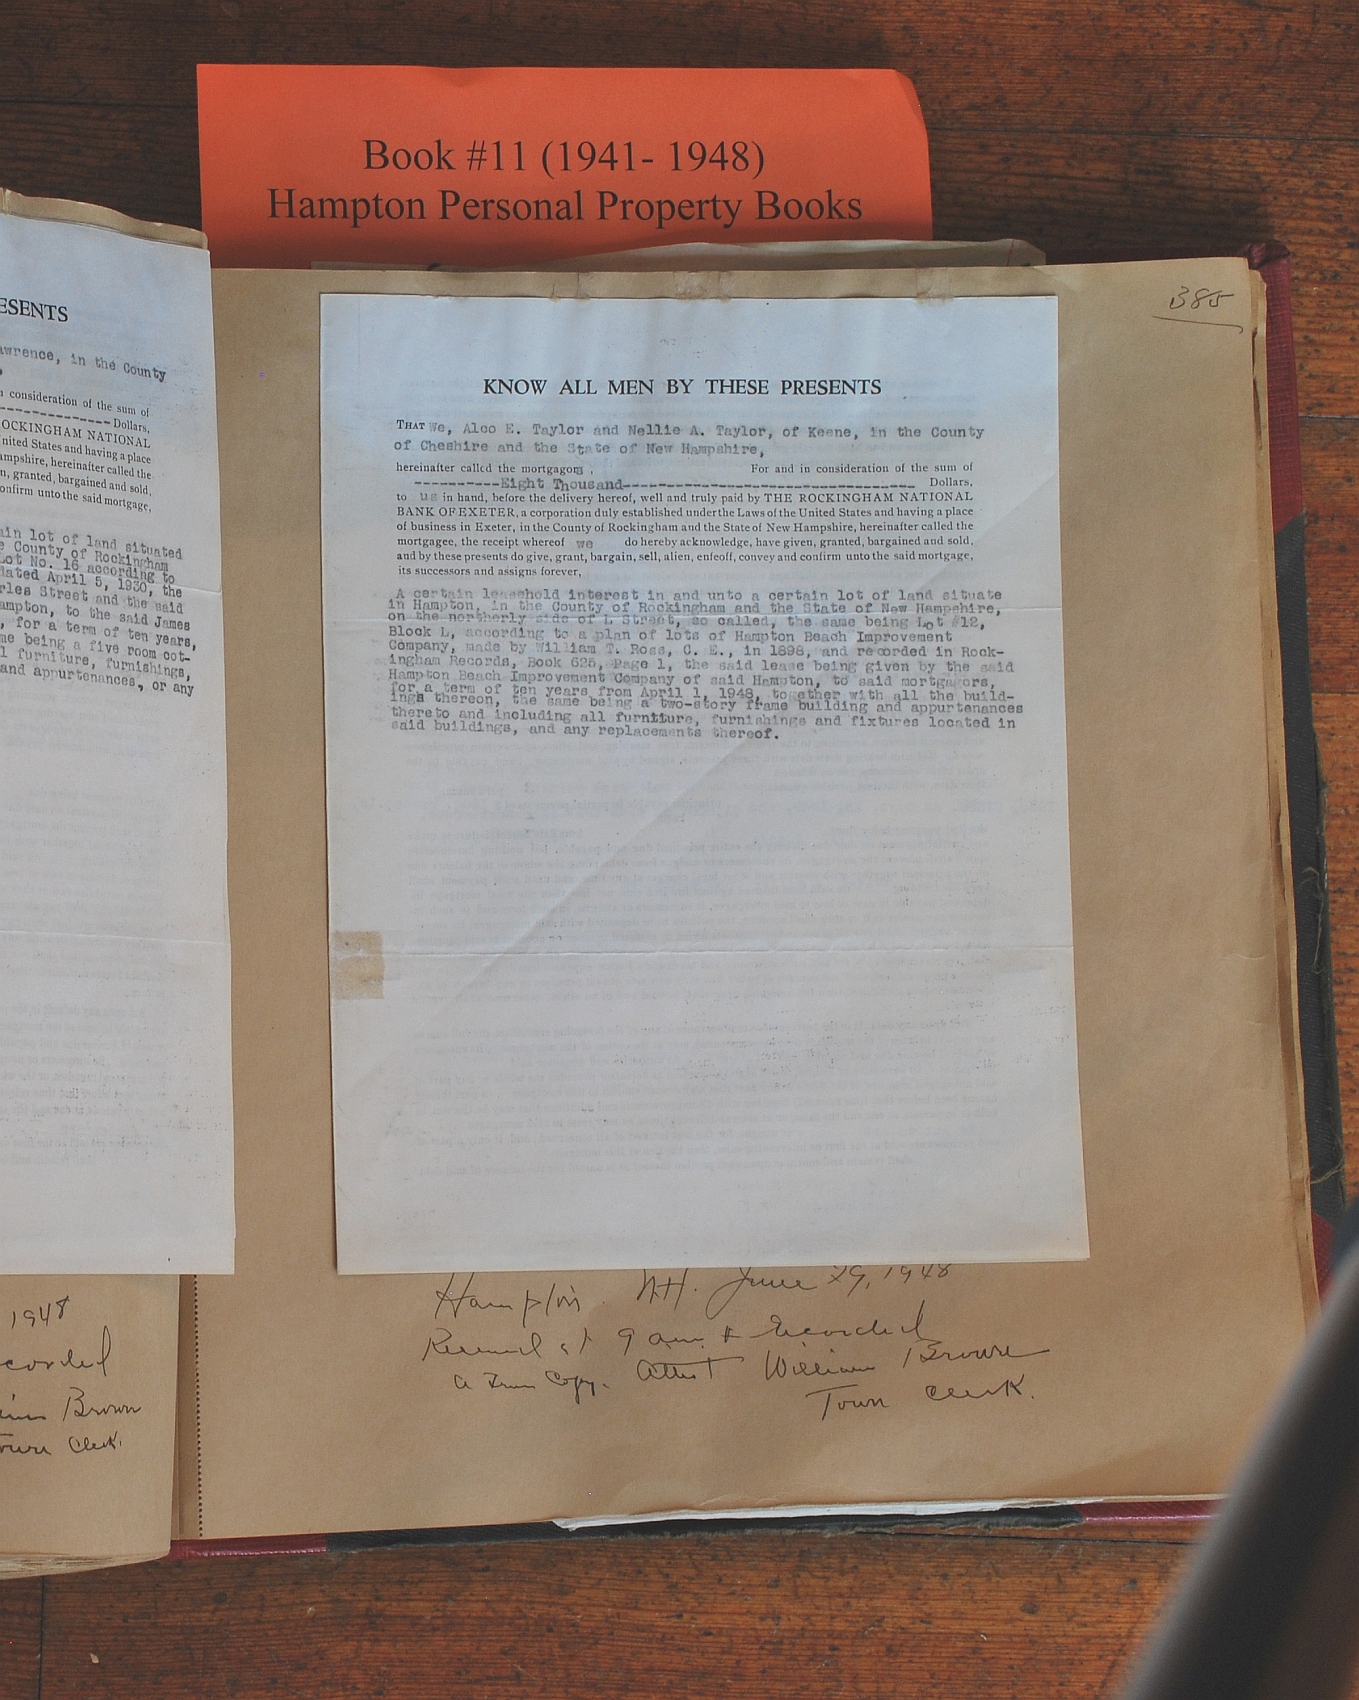 Book #11 (1941- 1948)
Hampton Personal Property Books
ESENTS
awrence, in the County
n consideration of the sum of
Dollars,
OCKINGHAM NATIONAL
nited States and having a place
ampshire, hereinafter called the
n, granted, bargained and sold,
onfirm unto the said mortgage,
ain lot of land situated
e County of Rockingham
Lot No. 16 according to
dated April 5, 1930, the
rles Street and the said
ampton, to the said James
, for a term of ten years,
me being a five room cot-
l furniture, furnishings,
and appurtenances, or any
1948
corded
Brown
Town Clerk.
385
KNOW ALL MEN BY THESE PRESENTS
THAT We, Alco E. Taylor and Nellie A. Taylor, of Keene, in the County
of Cheshire and the State of New Hampshire,
hereinafter called the mortgagors , For and in consideration of the sum of
----------Eight Thousand------------------------------ Dollars,
to us in hand, before the delivery hereof, well and truly paid by THE ROCKINGHAM NATIONAL
BANK OF EXETER, a corporation duly established under the Laws of the United States and having a place
of business in Exeter, in the County of Rockingham and the State of New Hampshire, hereinafter called the
mortgagee, the receipt whereof we do hereby acknowledge, have given, granted, bargained and sold,
and by these presents do give, grant, bargain, sell, alien, enfeoff, convey and confirm unto the said mortgage,
its successors and assigns forever,
A certain leasehold interest in and unto a certain lot of land situate
in Hampton, in the County of Rockingham and the State of New Hampshire,
on the northerly side of L Street, so called, the same being Lot #12,
Block L, according to a plan of lots of Hampton Beach Improvement
Company, made by William T. Ross, C. E., in 1898, and recorded in Rock-
ingham Records, Book 625, Page 1, the said lease being given by the said
Hampton Beach Improvement Company of said Hampton, to said mortgagors,
for a term of ten years from April 1, 1948, together with all the build-
ings thereon, the same being a two-story frame building and appurtenances
thereto and including all furniture, furnishings and fixtures located in
said buildings, and any replacements thereof.
Hampton. N.H. June 29, 1948
Received at 9 am & Recorded
a True Copy. Attest William Brown
Town Clerk.